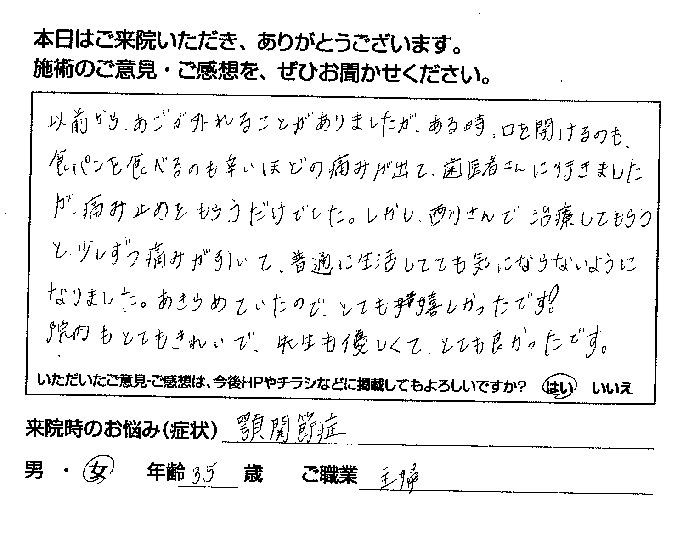 本日はご来院いただき、ありがとうございます。
施術のご意見・ご感想を、ぜひお聞かせください。
以前から、あごが外れることがありましたが、ある時、口を開けるのも、
食パンを食べるのも辛いほどの痛みが出て、歯医者さんに行きました
が、痛み止めをもらうだけでした。しかし、西川さんで治療してもらう
と、少しずつ痛みが引いて、普通に生活してても気にならないように
なりました。あきらめていたので、とても嬉しかったです!
院内もとてもきれいで、先生も優しくて、とても良かったです。
いただいたご意見・ご感想は、今後HPやチラシなどに掲載してもよろしいですか? はい いいえ
来院時のお悩み(症状) 顎関節症
男 ・ 女 年齢 35 歳 ご職業 主婦